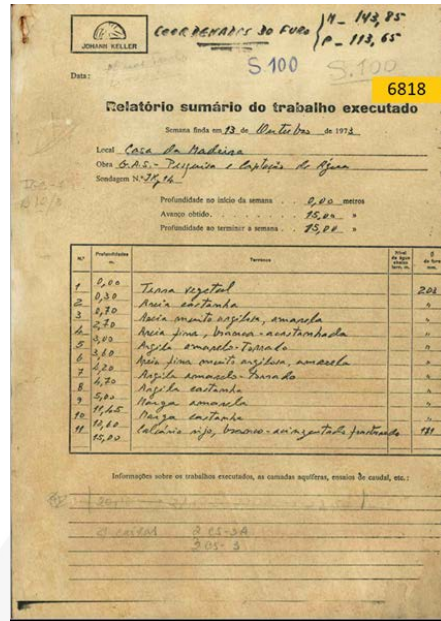 JOHANN KELLER
COORDENADAS DO FURO
M - 143,85
P - 113,65
S.100
S.100
6818
Data:
Relatório sumário do trabalho executado
Semana finda em 13 de Outubro de 1973
Local Casa da Madeira
Obra G.A.S. - Pesquisa e Captação de Água
Sondagem N.º
Profundidade no início da semana . . 0,00 metros
Avanço obtido. . . . . . . . 15,00 »
Profundidade ao terminar a semana . . 15,00 »
N.º Profundidades m. Terrenos Nível da água
0,00
1 Terra vegetal 203
0,30
2 Areia castanha "
0,70
3 Areia muito argilosa, amarela "
2,70
4 Areia fina, branca-acastanhada "
3,00
5 Argila amarelo-torrado "
3,60
6 Areia fina muito argilosa, amarela "
4,20
7 Argila amarelo-torrado "
4,70
8 Argila castanha "
5,00
9 Marga amarela "
11,45
10 Marga castanha "
13,60
11 Calcário rijo, branco-acinzentado fracturado
15,00
Informações sobre os trabalhos executados, as camadas aquíferas, ensaios de caudal, etc.: